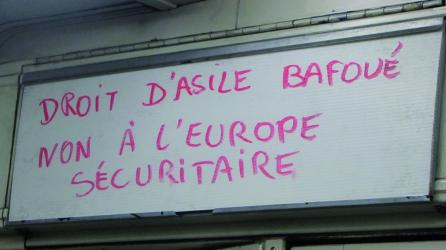 DROIT D'ASILE BAFOUÉ
NON À L'EUROPE
SÉCURITAIRE